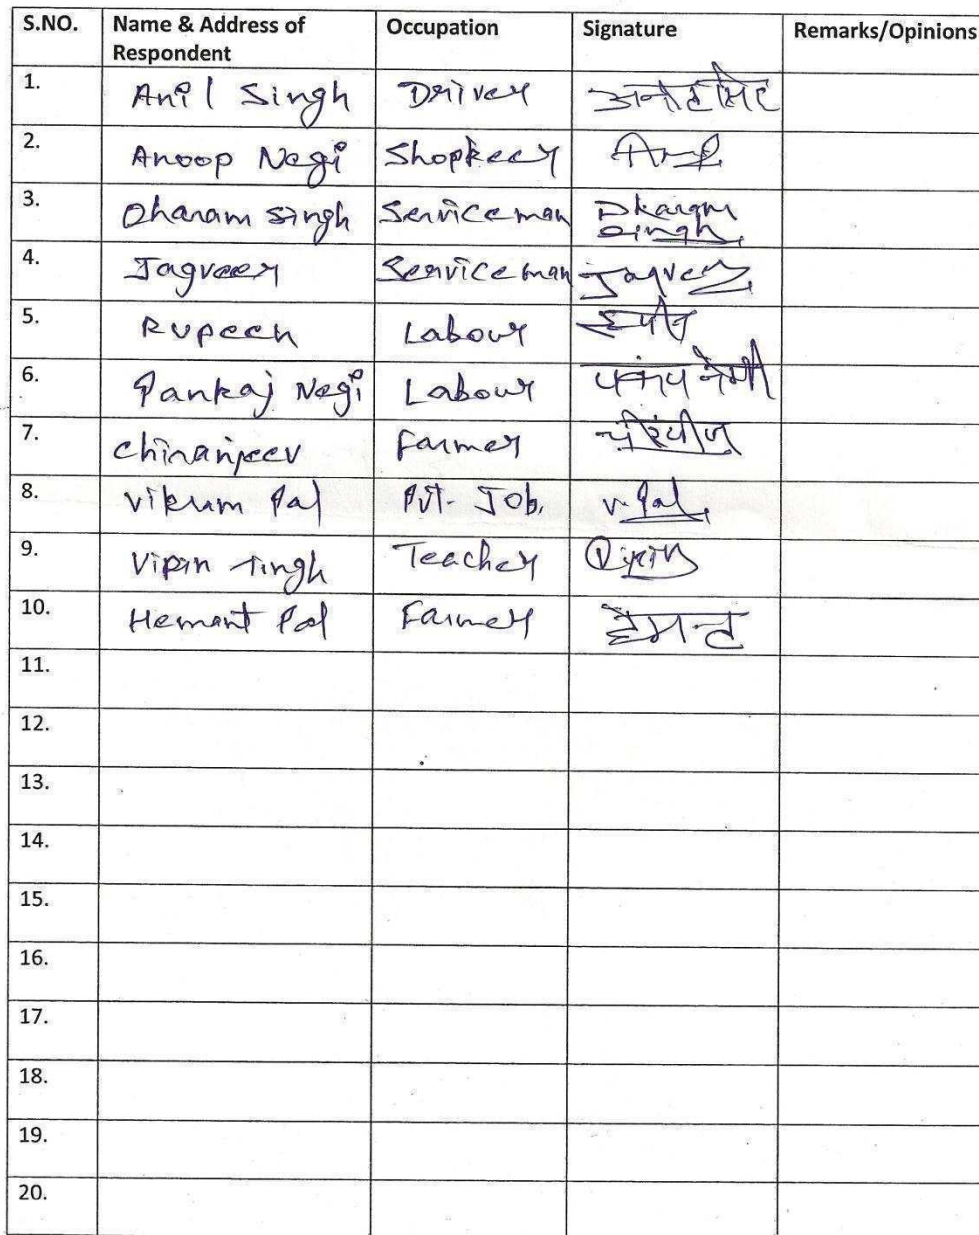 S.NO. Name & Address of Respondent Occupation Signature Remarks/Opinions
1. Anil Singh Driver
2. Anoop Negi Shopkeer
3. Dharam Singh Serviceman Dharam Singh
4. Jagveer Serviceman Jagveer
5. Rupeen Labour
6. Pankaj Negi Labour
7. Chiranjeev Farmer
8. Vikram Pal Pvt. Job. V. Pal
9. Vipin Singh Teacher
10. Hemant Pal Farmer हेमन्त
11.
12.
13.
14.
15.
16.
17.
18.
19.
20.